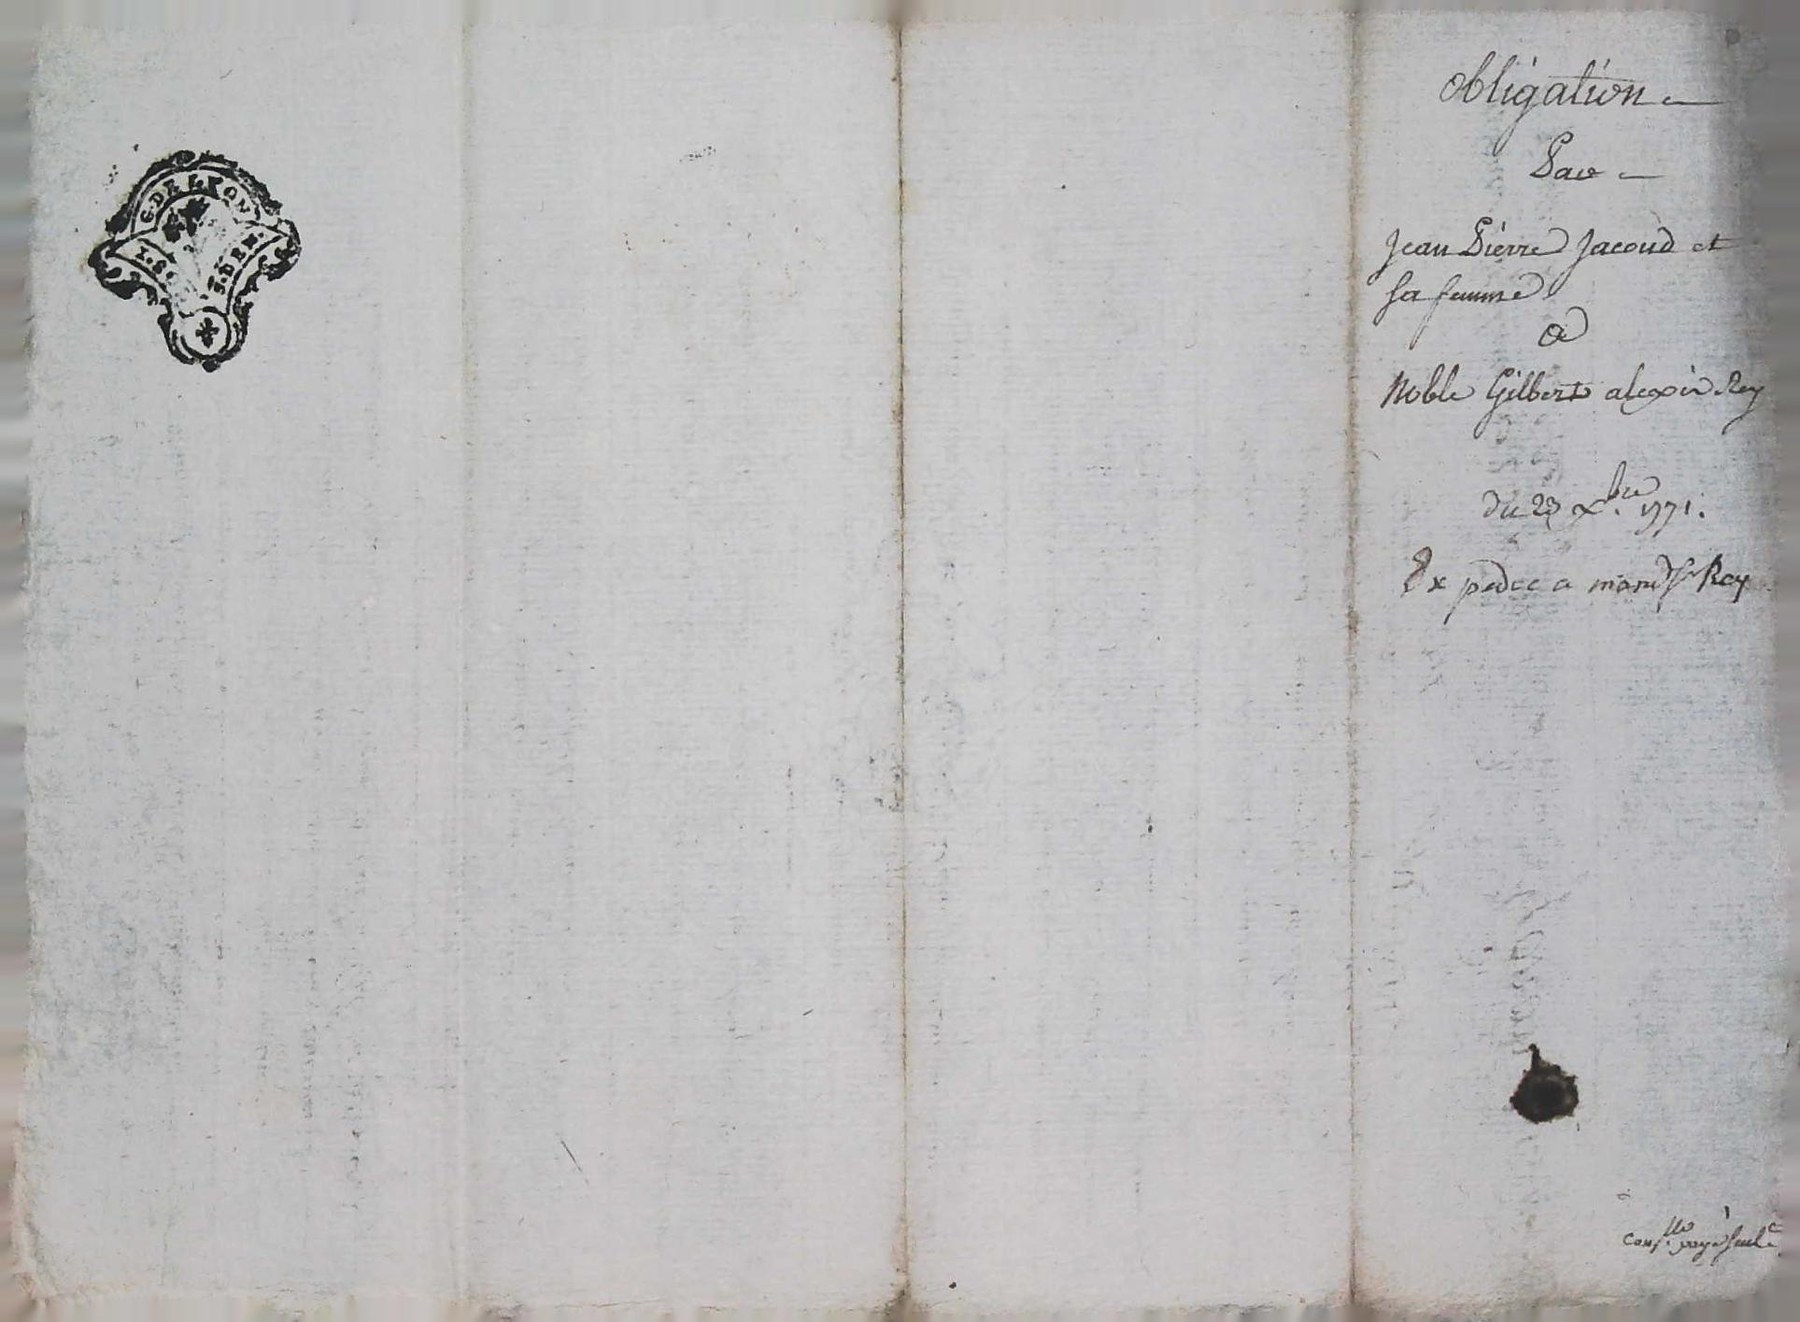 G. DE LYON
S. DEN.
obligation
Par
Jean Pierre Jacoud et
sa femme
a
Noble Gilbert alexis Rey
du 23 Xbre 1771.
Expedee a mond Sr Rey
payé seul